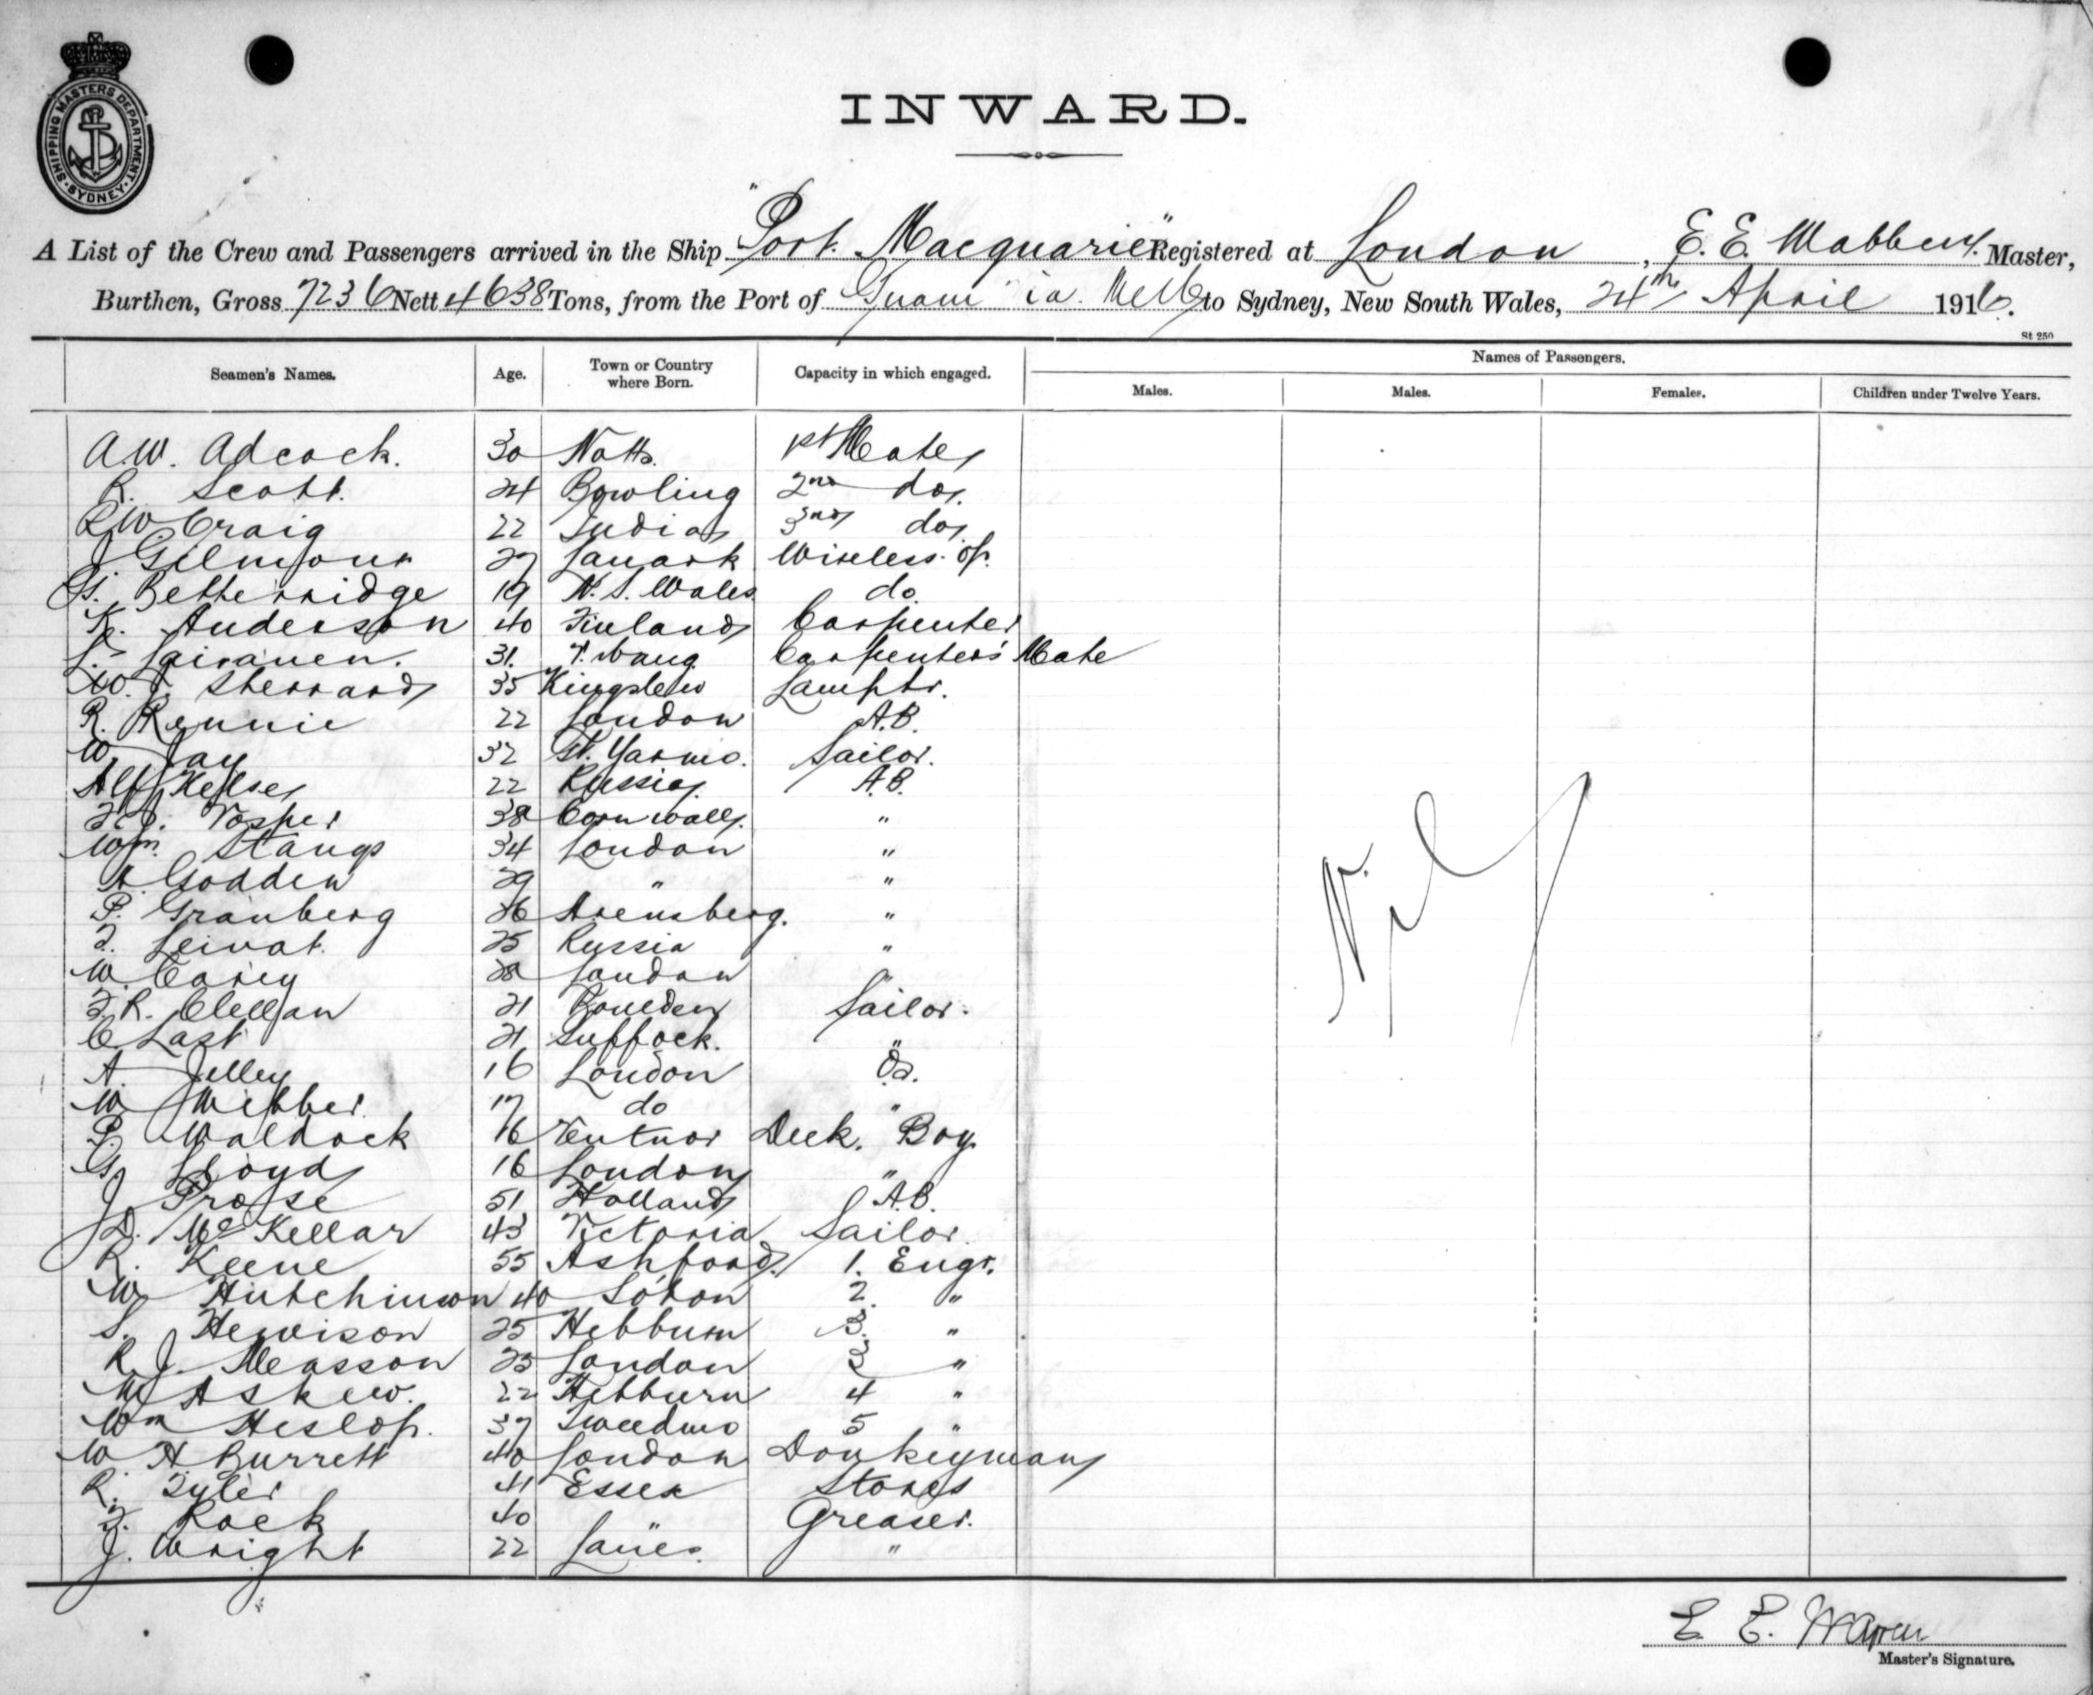 SHIPPING MASTERS DEPARTMENT SYDNEY
INWARD.
A List of the Crew and Passengers arrived in the Ship "Port Macquarie" Registered at London, E. E. Master,
Burthen, Gross 7236 Nett 4638 Tons, from the Port of Guam via Melb to Sydney, New South Wales, 24th April 1916.
St 250
Seamen's Names. Age. Town or Country where Born. Capacity in which engaged. Names of Passengers.
Males. Males. Females. Children under Twelve Years.
A. W. Adcock. 30 Notts. 1st Mate
R. Scott. 24 Bowling 2nd do.
Craig 22 India 3rd do.
J Gilmour 27 Lanark Wireless op.
Betherridge 19 N. S. Wales do.
K. Anderson 40 Finland Carpenter
L. Sairanen. 31. Carpenters' Mate
W. J. Sherrard 35 Lamptr.
R. Rennie 22 London A.B.
W. Jay 32 Gt. Yarmo. Sailor.
Alf 22 Russia. A.B.
F. J. Vosper 38 Cornwall. "
Wm. 34 London "
A. Godden 29 " "
P. Granberg 26 Arensberg. "
25 Russia "
W. Carey 28 London "
F. R. Clellan 21 Sailor.
C. Last 21 Suffock. "
A. Jelley 16 London Os.
W. Webber. 17 do "
P. Waldock 16 Ventnor Deck. Boy.
G. Lloyd 16 London "
J. Prosse 51 Holland A.B.
D. McKellar 43 Victoria Sailor.
R. Keene 55 Ashford. 1. Engr.
W. Hutchinson 40 2. "
S. Hewison 25 Hebburn 3. "
R. J. Measson 25 London 3 "
W Askew. 22 Hebburn 4 "
Wm Heslop. 37 Tweedmo 5 "
W H Burrett 40 London Donkeyman
R. Tyler 41 Essex Stores
F. Rock 40 " Greaser.
J. Wright 22 Lancs. "
Nil
E. E.
Master's Signature.